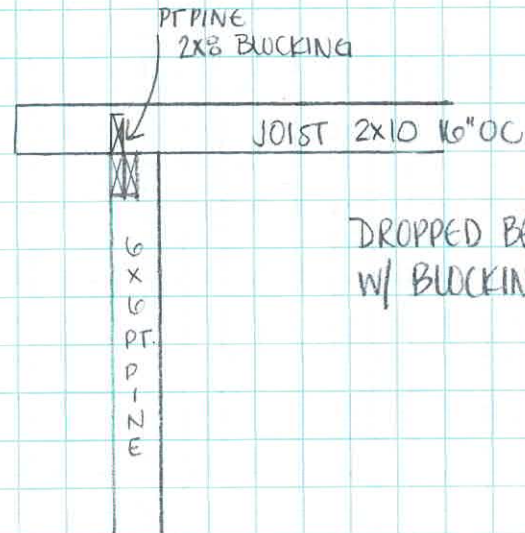 PT PINE
2X8 BLOCKING
JOIST 2X10 16"OC
DROPPED BE
W/ BLOCKIN
6
X
6
PT.
P
I
N
E